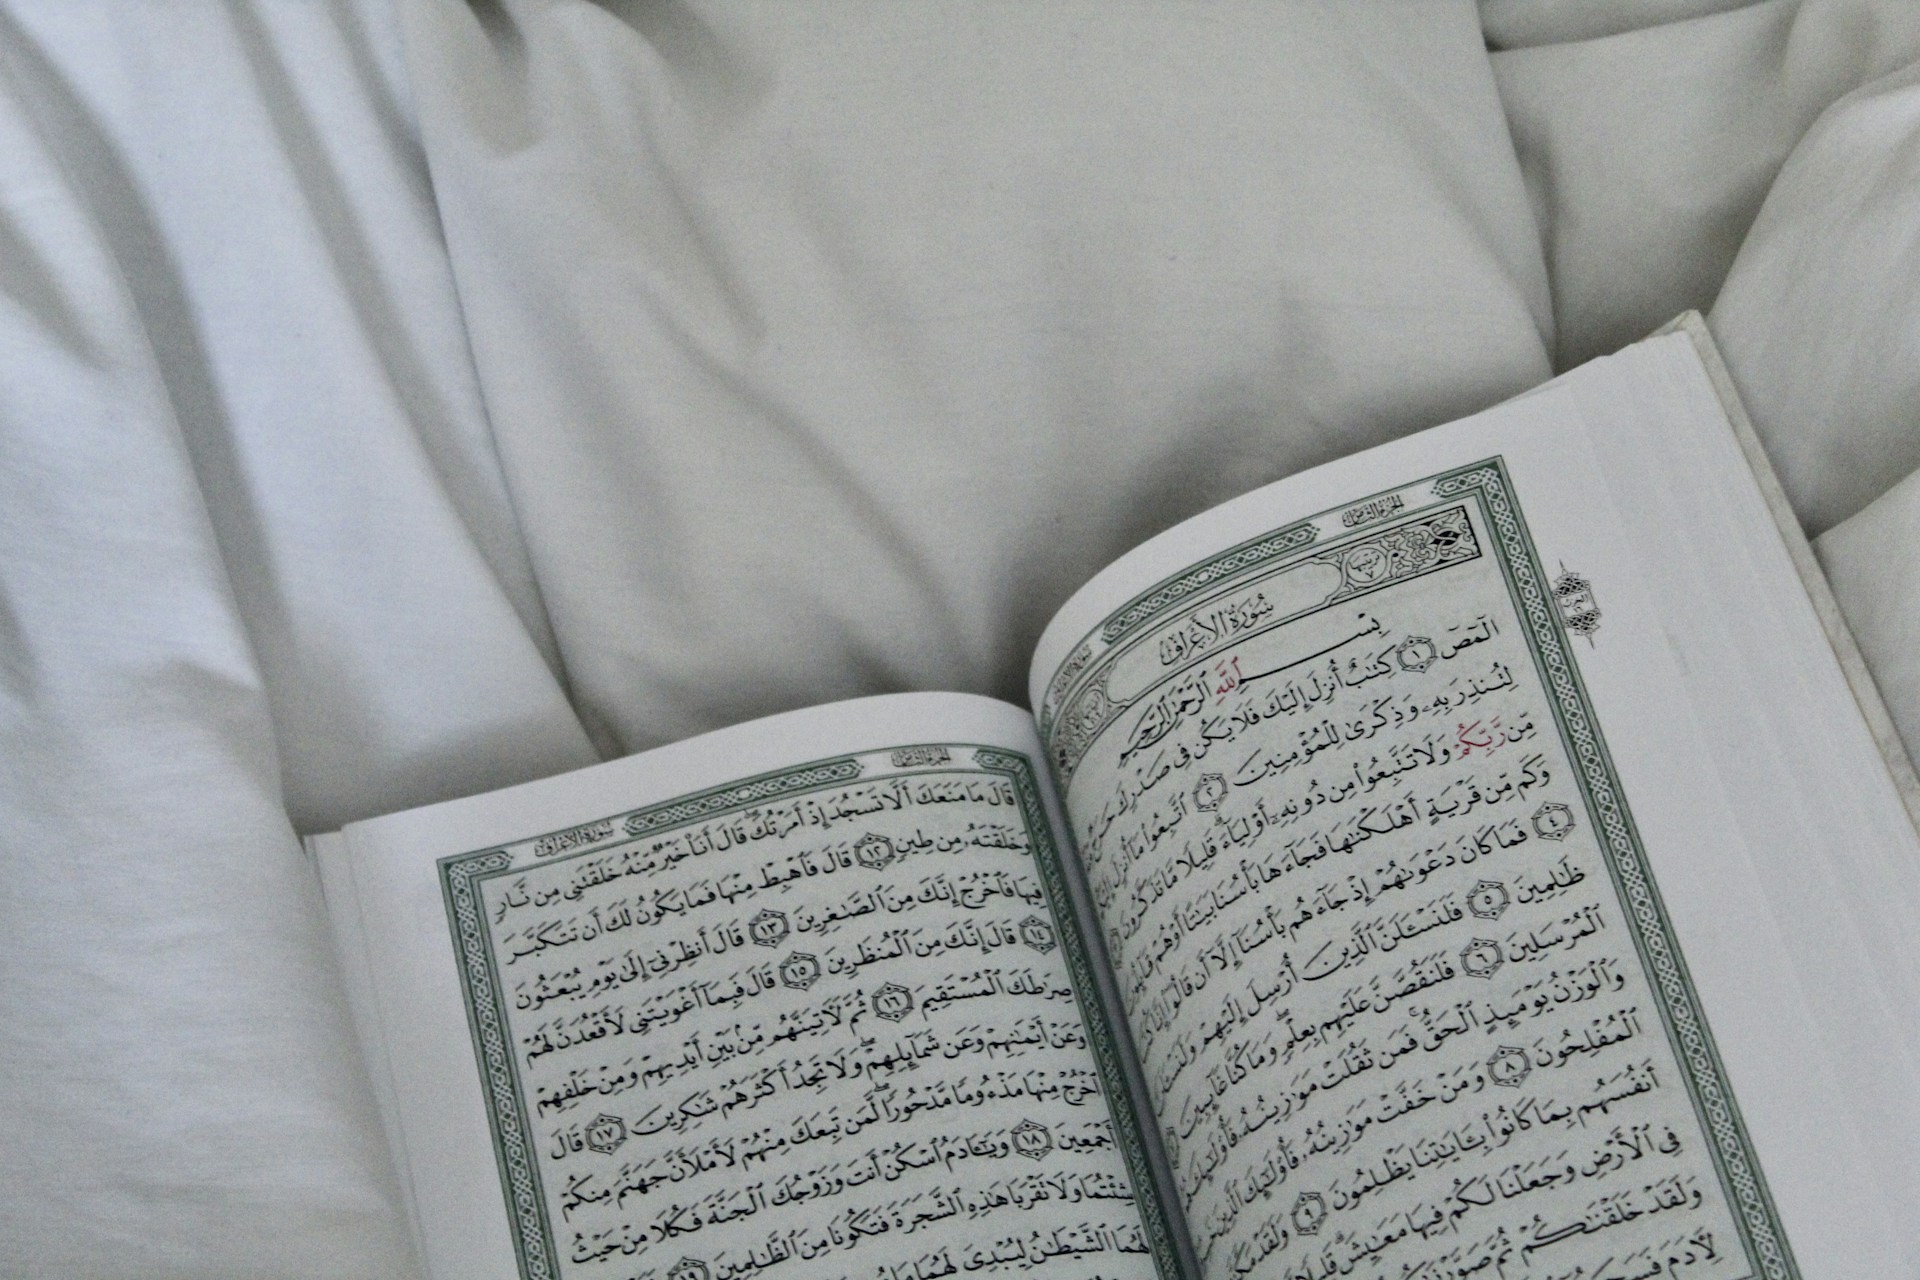 الجزء الثامن
سورة الأعراف
ترتيبها ٧
سُورَةُ الأَعْرَافِ
بِسْمِ ٱللَّهِ ٱلرَّحْمَٰنِ ٱلرَّحِيمِ
الٓمٓصٓ ١ كِتَٰبٌ أُنزِلَ إِلَيْكَ فَلَا يَكُن فِى صَدْرِكَ حَرَجٌ
لِتُنذِرَ بِهِۦ وَذِكْرَىٰ لِلْمُؤْمِنِينَ ٢ ٱتَّبِعُوا۟ مَآ أُنزِلَ
مِّن رَّبِّكُمْ وَلَا تَتَّبِعُوا۟ مِن دُونِهِۦٓ أَوْلِيَآءَ قَلِيلًا مَّا تَذَكَّرُونَ
وَكَم مِّن قَرْيَةٍ أَهْلَكْنَٰهَا فَجَآءَهَا بَأْسُنَا بَيَٰتًا أَوْ هُمْ
٤ فَمَا كَانَ دَعْوَىٰهُمْ إِذْ جَآءَهُم بَأْسُنَآ إِلَّآ أَن قَالُوٓا۟ إِنَّا كُنَّا
ظَٰلِمِينَ ٥ فَلَنَسْـَٔلَنَّ ٱلَّذِينَ أُرْسِلَ إِلَيْهِمْ
ٱلْمُرْسَلِينَ ٦ فَلَنَقُصَّنَّ عَلَيْهِم بِعِلْمٍ وَمَا كُنَّا غَآئِبِينَ
وَٱلْوَزْنُ يَوْمَئِذٍ ٱلْحَقُّ فَمَن ثَقُلَتْ مَوَٰزِينُهُۥ فَأُو۟لَٰٓئِكَ
ٱلْمُفْلِحُونَ ٨ وَمَنْ خَفَّتْ مَوَٰزِينُهُۥ فَأُو۟لَٰٓئِكَ ٱلَّذِينَ
أَنفُسَهُم بِمَا كَانُوا۟ بِـَٔايَٰتِنَا يَظْلِمُونَ ٩ وَلَقَدْ
فِى ٱلْأَرْضِ وَجَعَلْنَا لَكُمْ فِيهَا مَعَٰيِشَ قَلِيلًا
وَلَقَدْ خَلَقْنَٰكُمْ ثُمَّ صَوَّرْنَٰكُمْ
لِءَادَمَ
الحزب
الجزء الثامن
سورة الأعراف
قَالَ مَا مَنَعَكَ أَلَّا تَسْجُدَ إِذْ أَمَرْتُكَ قَالَ أَنَا۠ خَيْرٌ مِّنْهُ خَلَقْتَنِى مِن نَّارٍ
وَخَلَقْتَهُۥ مِن طِينٍ ١٢ قَالَ فَٱهْبِطْ مِنْهَا فَمَا يَكُونُ لَكَ أَن تَتَكَبَّرَ
فِيهَا فَٱخْرُجْ إِنَّكَ مِنَ ٱلصَّٰغِرِينَ ١٣ قَالَ أَنظِرْنِىٓ إِلَىٰ يَوْمِ يُبْعَثُونَ
١٤ قَالَ إِنَّكَ مِنَ ٱلْمُنظَرِينَ ١٥ قَالَ فَبِمَآ أَغْوَيْتَنِى لَأَقْعُدَنَّ لَهُمْ
صِرَٰطَكَ ٱلْمُسْتَقِيمَ ١٦ ثُمَّ لَءَاتِيَنَّهُم مِّنۢ بَيْنِ أَيْدِيهِمْ وَمِنْ خَلْفِهِمْ
وَعَنْ أَيْمَٰنِهِمْ وَعَن شَمَآئِلِهِمْ وَلَا تَجِدُ أَكْثَرَهُمْ شَٰكِرِينَ ١٧ قَالَ
ٱخْرُجْ مِنْهَا مَذْءُومًا مَّدْحُورًا لَّمَن تَبِعَكَ مِنْهُمْ لَأَمْلَأَنَّ جَهَنَّمَ مِنكُمْ
أَجْمَعِينَ ١٨ وَيَٰٓـَٔادَمُ ٱسْكُنْ أَنتَ وَزَوْجُكَ ٱلْجَنَّةَ فَكُلَا مِنْ حَيْثُ
شِئْتُمَا وَلَا تَقْرَبَا هَٰذِهِ ٱلشَّجَرَةَ فَتَكُونَا مِنَ ٱلظَّٰلِمِينَ ١٩
لَهُمَا ٱلشَّيْطَٰنُ لِيُبْدِىَ لَهُمَا مَا